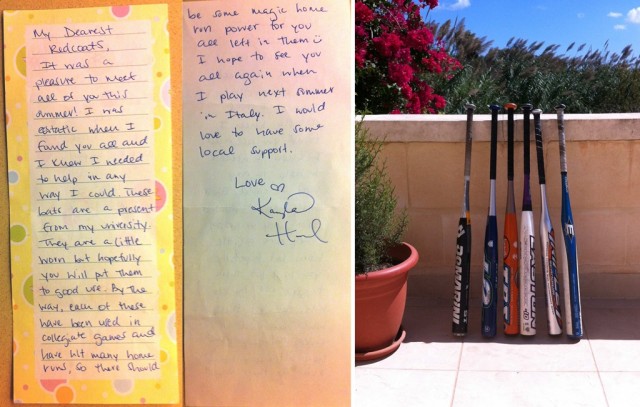 My Dearest
Redcoats,
It was a
pleasure to meet
all of you this
summer! I was
estatic when I
found you all and
I knew I needed
to help in any
way I could. These
bats are a present
from my university.
They are a little
worn but hopefully
you will put them
to good use. By the
way, each of these
have been used in
collegiate games and
have hit many home
runs, so there should
be some magic home
run power for you
all left in them
I hope to see you
all again when
I play next summer
in Italy. I would
love to have some
local support.
Love
Kayla
DEMARINI
EASTON